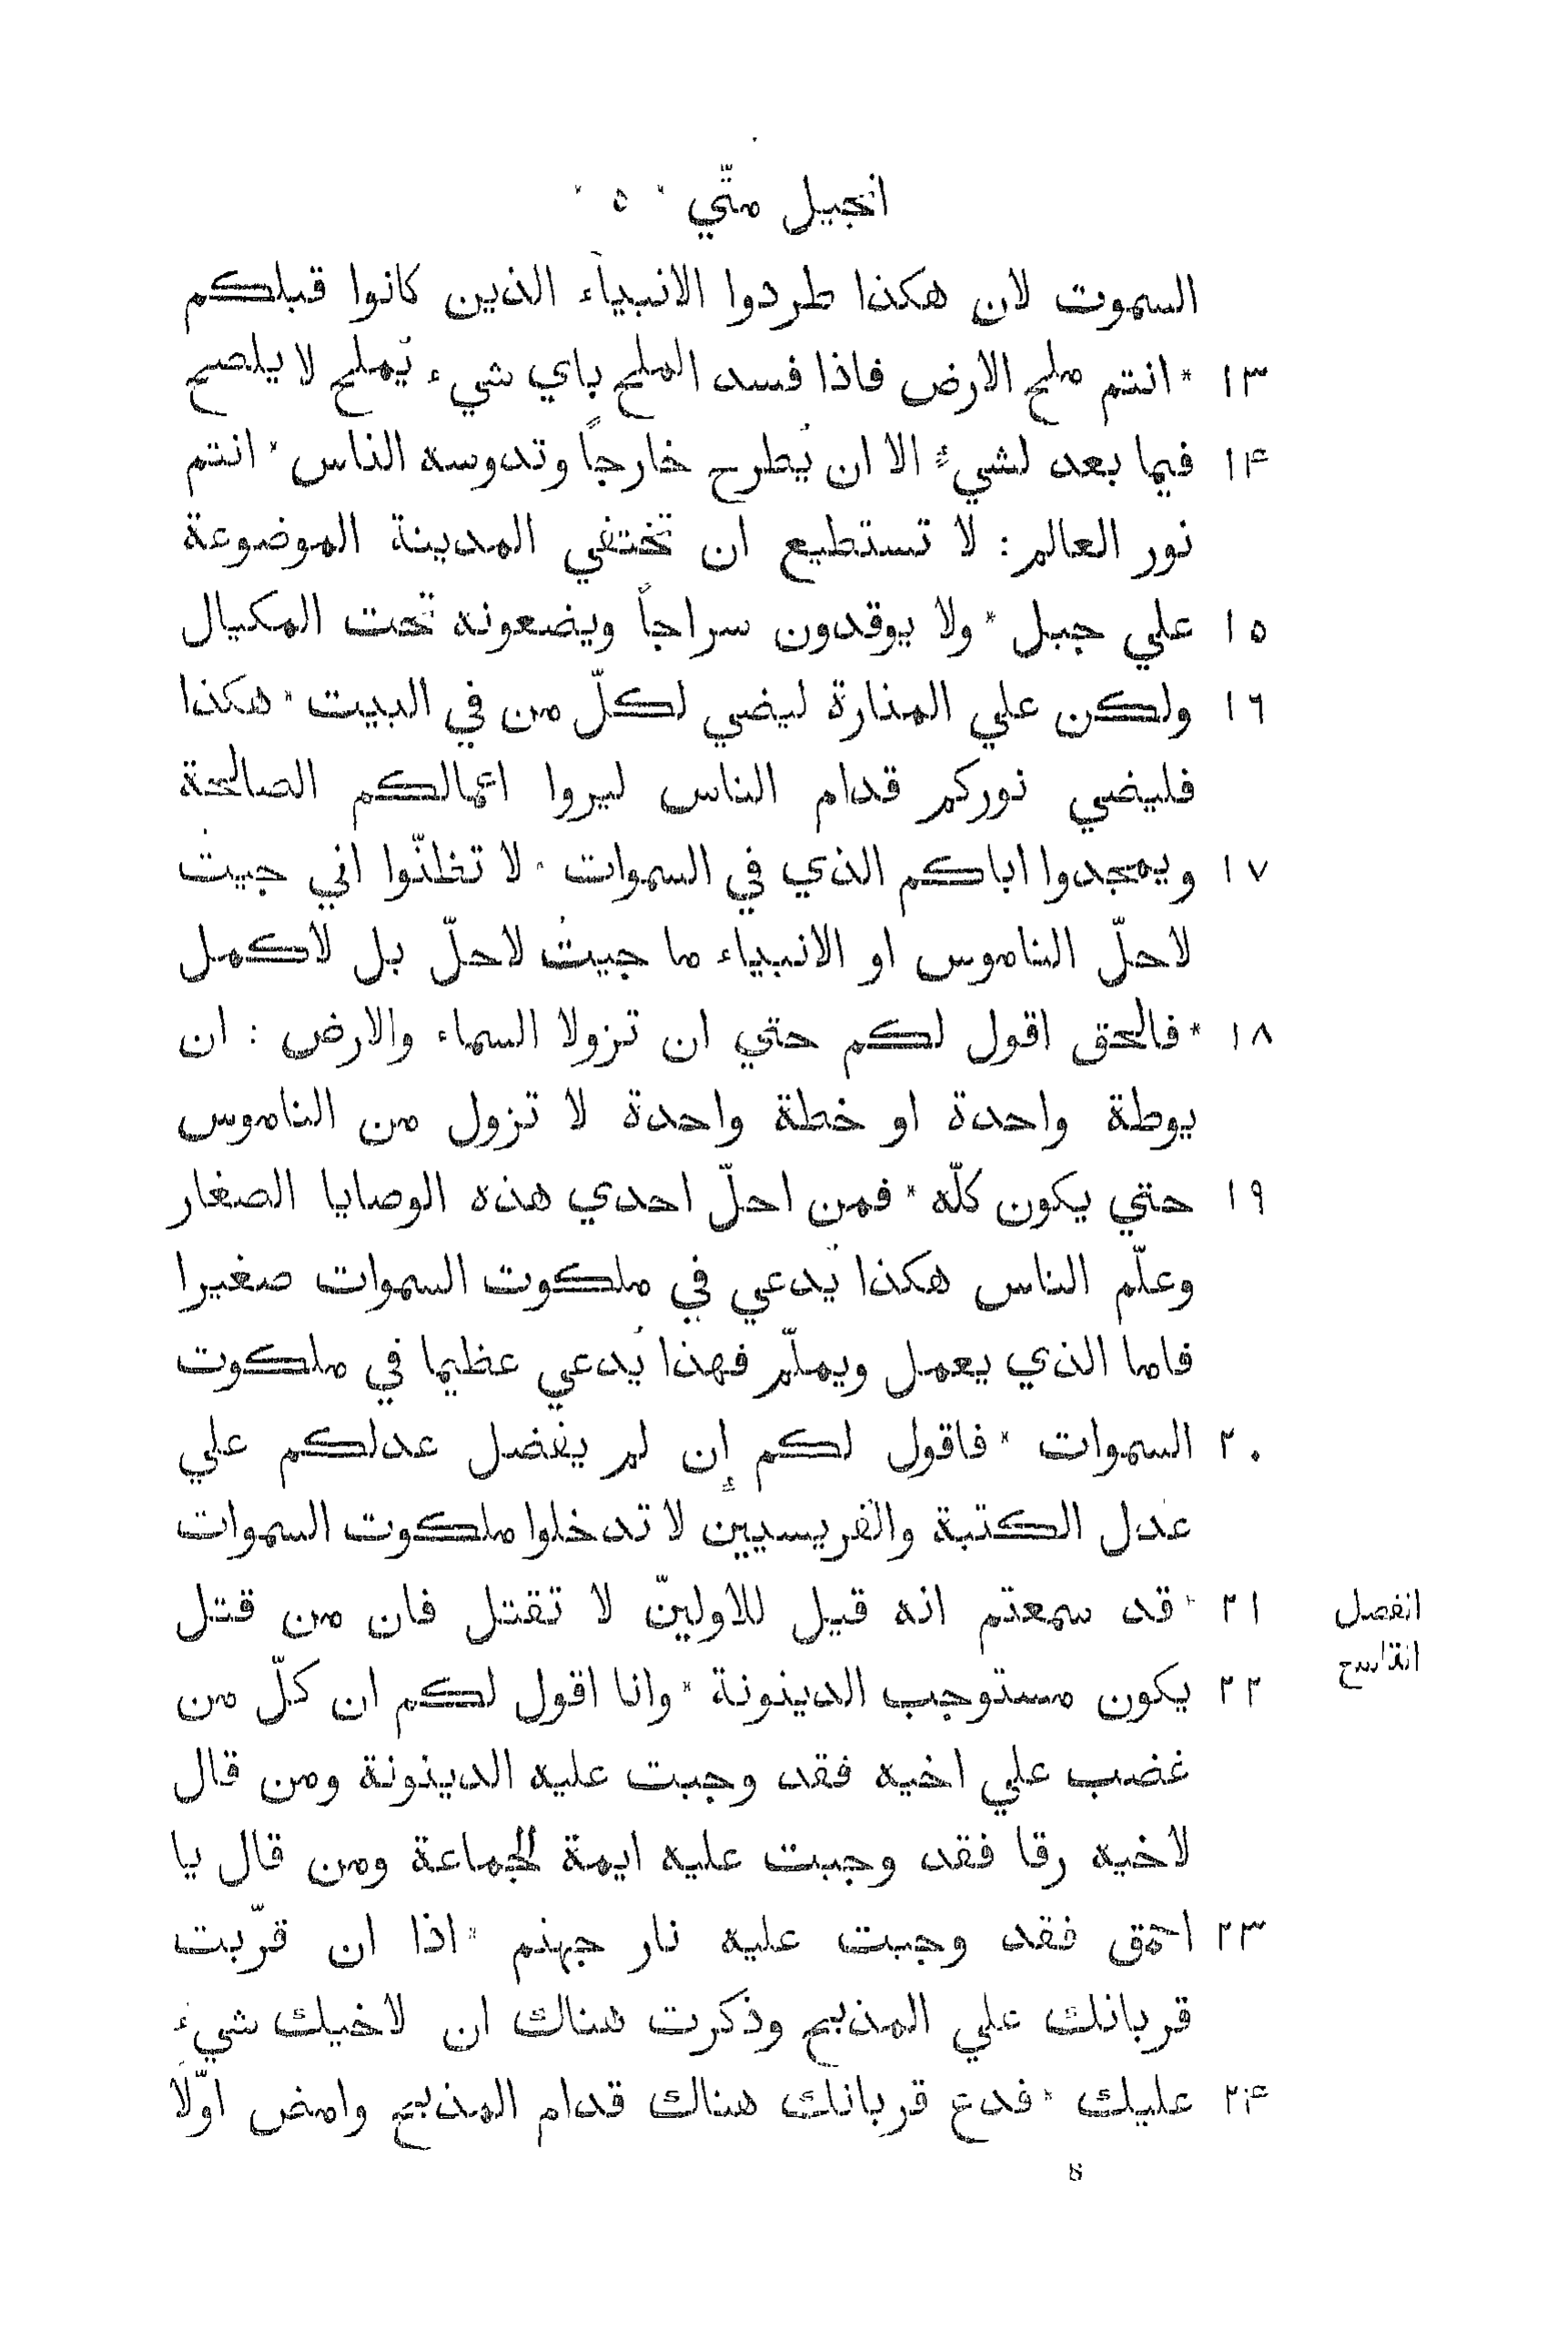 انجيل متّي * ٥ *
السموت لان هكذا طردوا الانبياء الذين كانوا قبلكم
١٣ * انتم ملح الارض فاذا فسد الملح باي شيء يُملح لا يلصح
١۴ فيما بعد لشيءٍ الا ان يُطرح خارجاً وتدوسه الناس * انتم
نور العالم : لا تستطيع ان تختفي المدينة الموضوعة
١٥ علي جبل * ولا يوقدون سراجاً ويضعونه تحت المكيال
١٦ ولكن علي المنارة ليضي لكلّ من في البيت * هكذا
فليضي نوركم قدام الناس ليروا اعمالكم الصالحة
١٧ ويمجدوا اباكم الذي في السموات * لا تظنّوا اني جيتُ
لاحلّ الناموس او الانبياء ما جيتُ لاحلّ بل لاكمل
١٨ * فالحق اقول لكم حتي ان تزولا السماء والارض : ان
يوطة واحدة او خطة واحدة لا تزول من الناموس
١٩ حتي يكون كلّه * فمن احلّ احدي هذه الوصايا الصغار
وعلّم الناس هكذا يُدعي في ملكوت السموات صغيرا
فاما الذي يعمل ويملّم فهذا يُدعي عظيما في ملكوت
٢٠ السموات * فاقول لكم إن لم يفضل عدلكم علي
عدل الكتبة والفريسيين لا تدخلوا ملكوت السموات
٢١ * قد سمعتم انه قيل للاوليّن لا تقتل فان من قتل
انفصل
٢٢ يكون مستوجب الدينونة * وانا اقول لكم ان كلّ من
غضب علي اخيه فقد وجبت عليه الدينونة ومن قال
لاخيه رقا فقد وجبت عليه ايمة الجماعة ومن قال يا
٢٣ احمق فقد وجبت عليه نار جهنم * اذا ان قرّبت
قربانك علي المذبح وذكرت هناك ان لاخيك شيء
٢۴ عليك * فدع قربانك هناك قدام المذبح وامض اوّلاً
8